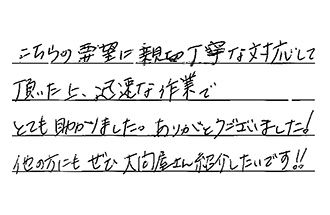 こちらの要望に親切丁寧な対応して
頂いた上、迅速な作業で
とても助かりました。ありがとうございました!
他の方にもぜひ大問屋さん紹介したいです!!